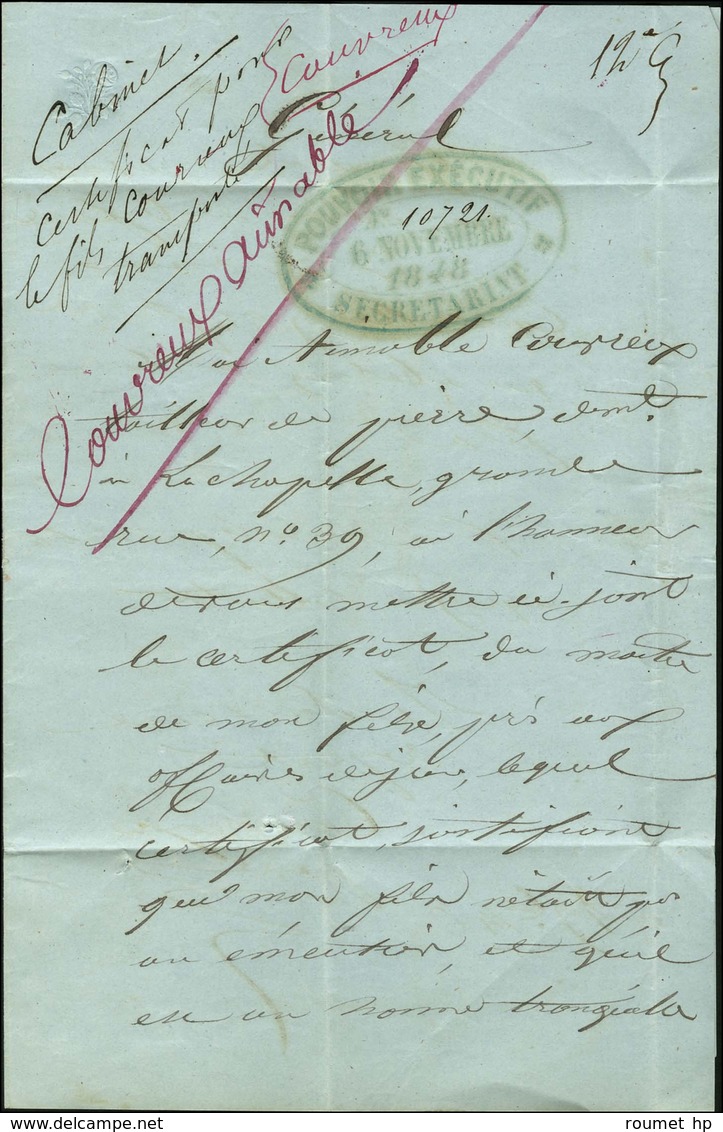 Cabinet.
certificat pour
le fils Couvreux
transporté
Couvreux
Couvreux aimable
12e G
Général
POUVOIR EXÉCUTIF
10721.
6 NOVEMBRE
1848
SECRETARIAT
Aimable Couvreux
tailleur de pierre, demt
a La chapelle, grande
rue, no. 39, a l'honneur
de vous mettre ci-joint
le certificat, du maitre
de mon fils, pris aux
affaires de juin, lequel
certificat, justifiant
que mon fils n'était pas
un émeutier, et qu'il
est un homme tranquille
roumet hp